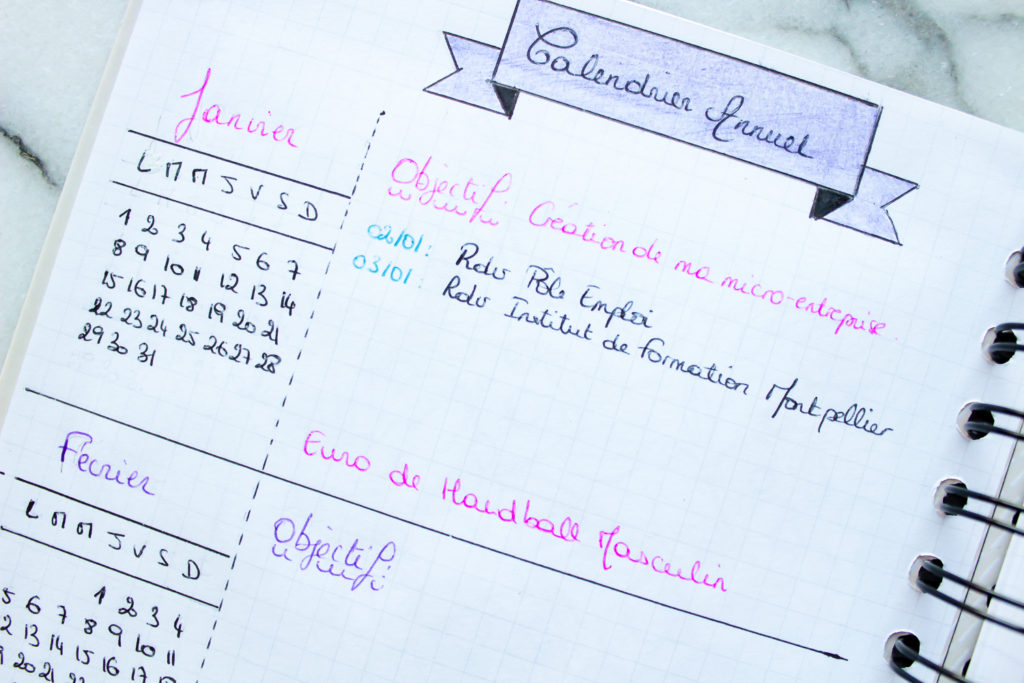 Calendrier Annuel
Janvier
L M M J V S D
1 2 3 4 5 6 7
8 9 10 11 12 13 14
15 16 17 18 19 20 21
22 23 24 25 26 27 28
29 30 31
Objectif Création de ma micro-entreprise.
02/01: Rdv Pôle Emploi
03/01: Rdv Institut de formation Montpellier
Euro de Handball Masculin
Février
L M M J V S D
1 2 3 4
5 6 7 8 9 10 11
2 13 14 15 16 17
20 21 22
Objectif